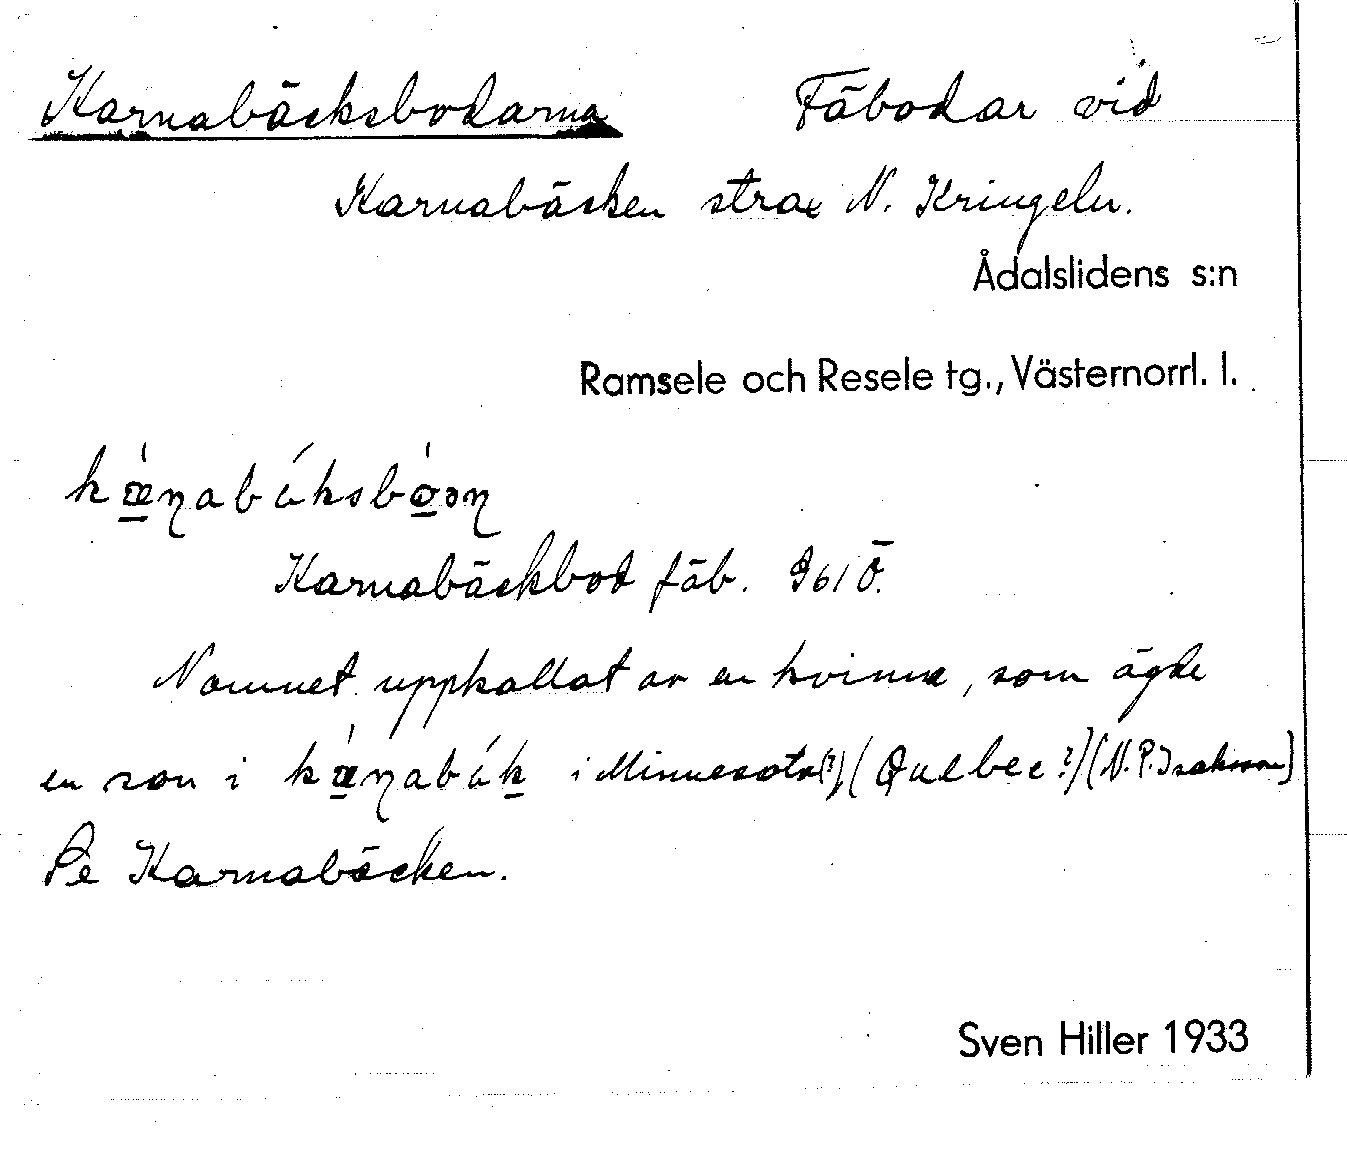 Karnabäcksbodarna Fäbodar vid
Karnabäcken strax N. Kringeln.
Ådalslidens s:n
Ramsele och Resele tg., Västernorrl. l.
Karnabäckbod fäb. 961 Ö.
Namnet uppkallat av en kvinna, som ägde
en son i i Minnesota(?) (Quebec?) (N.P. Isaksson)
Se Karnabäcken.
Sven Hiller 1933